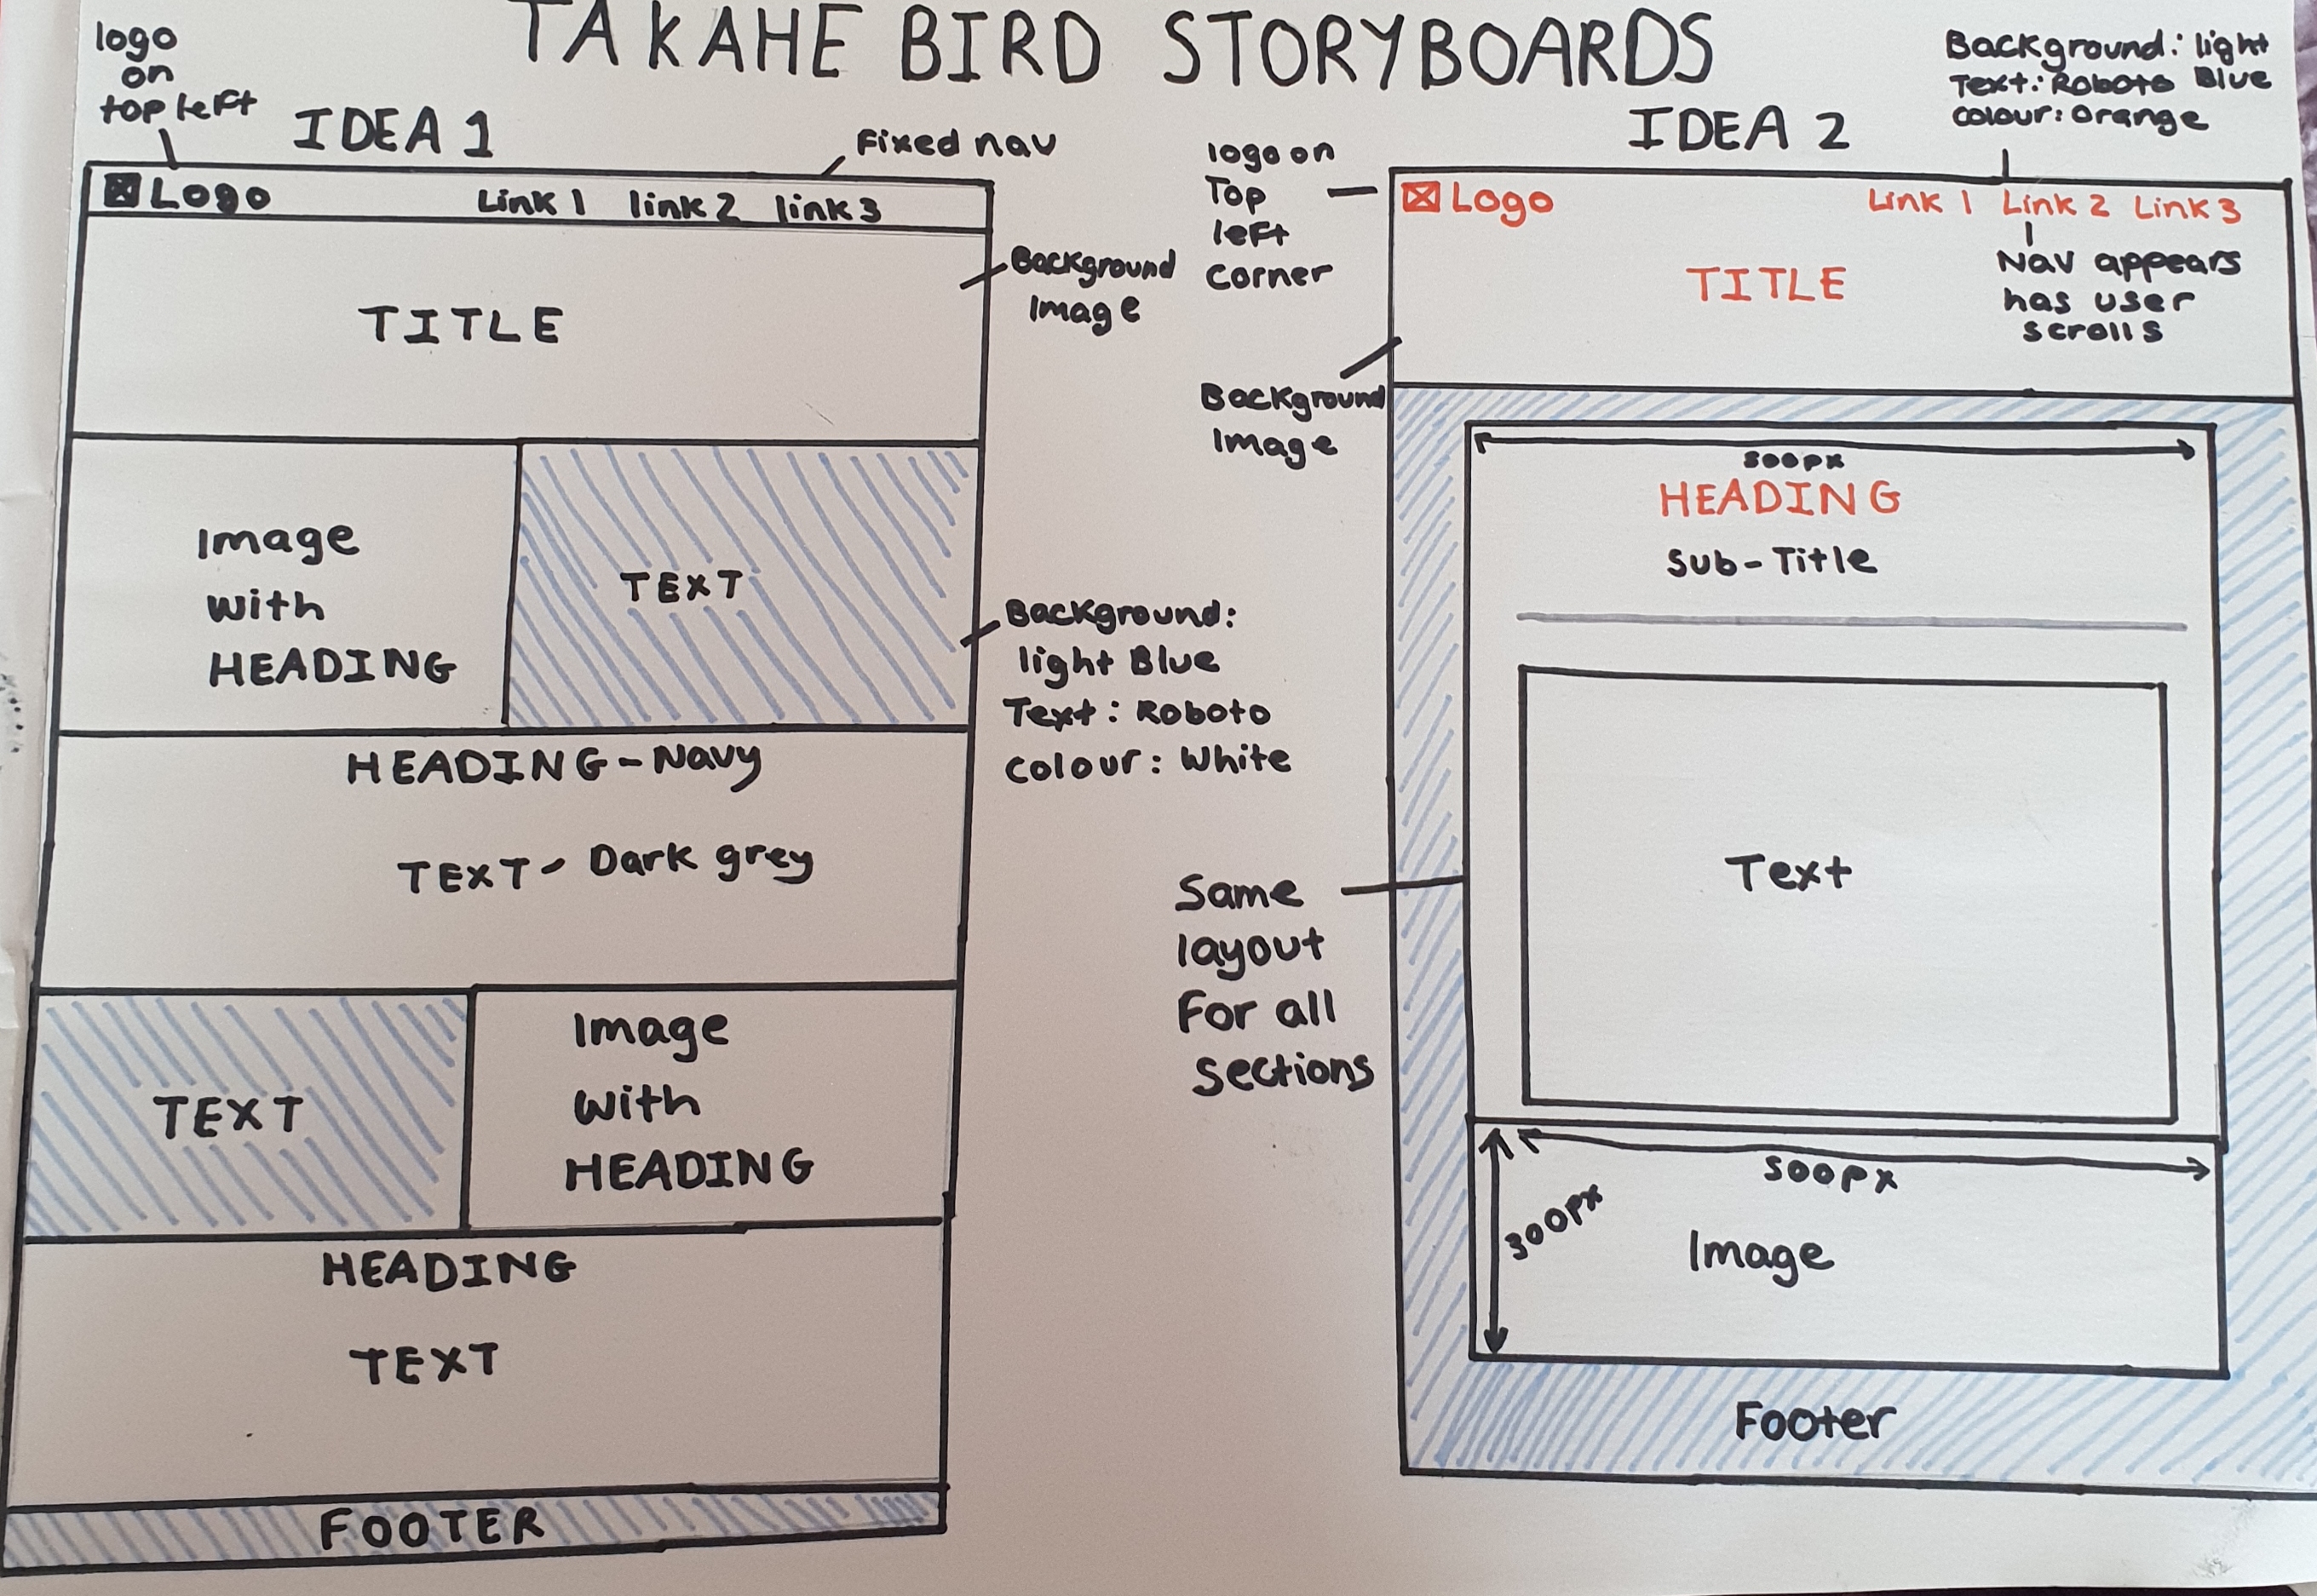 TAKAHE BIRD STORYBOARDS
logo
on
top left
IDEA 1
Fixed nav
Logo
Link 1 link 2 link 3
TITLE
Background
Image
Image
with
HEADING
TEXT
Background:
light Blue
Text: Roboto
colour: White
HEADING - Navy
TEXT - Dark grey
TEXT
Image
with
HEADING
HEADING
TEXT
FOOTER
IDEA 2
Background: light
Text: Roboto Blue
colour: Orange
logo on
Top
left
corner
Logo
Link 1 Link 2 Link 3
TITLE
Nav appears
has user
scrolls
Background
Image
500px
HEADING
Sub-Title
Text
Same
layout
For all
sections
500px
300px
Image
Footer